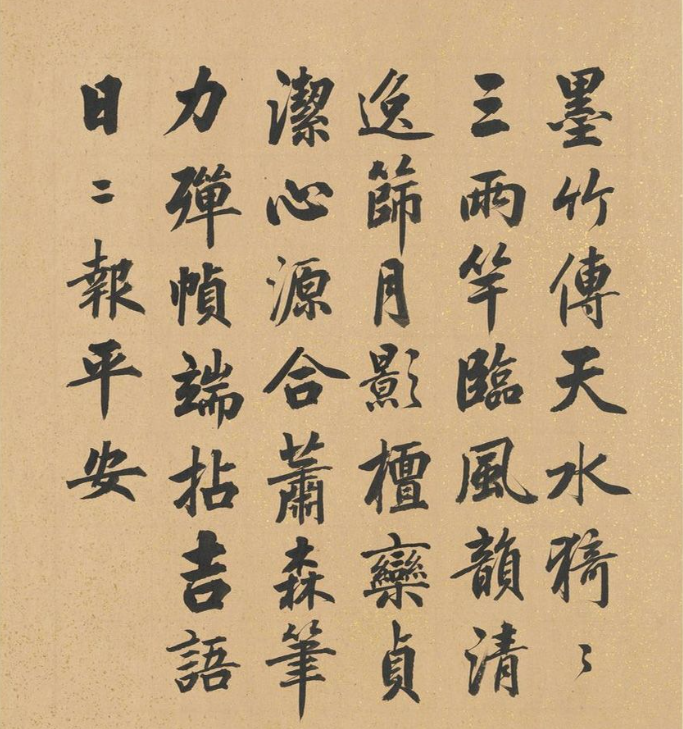 墨竹傳天水猗〻
三兩竿臨風韻清
逸篩月影檀欒貞
潔心源合蕭森筆
力殫幀端拈吉語
日〻報平安